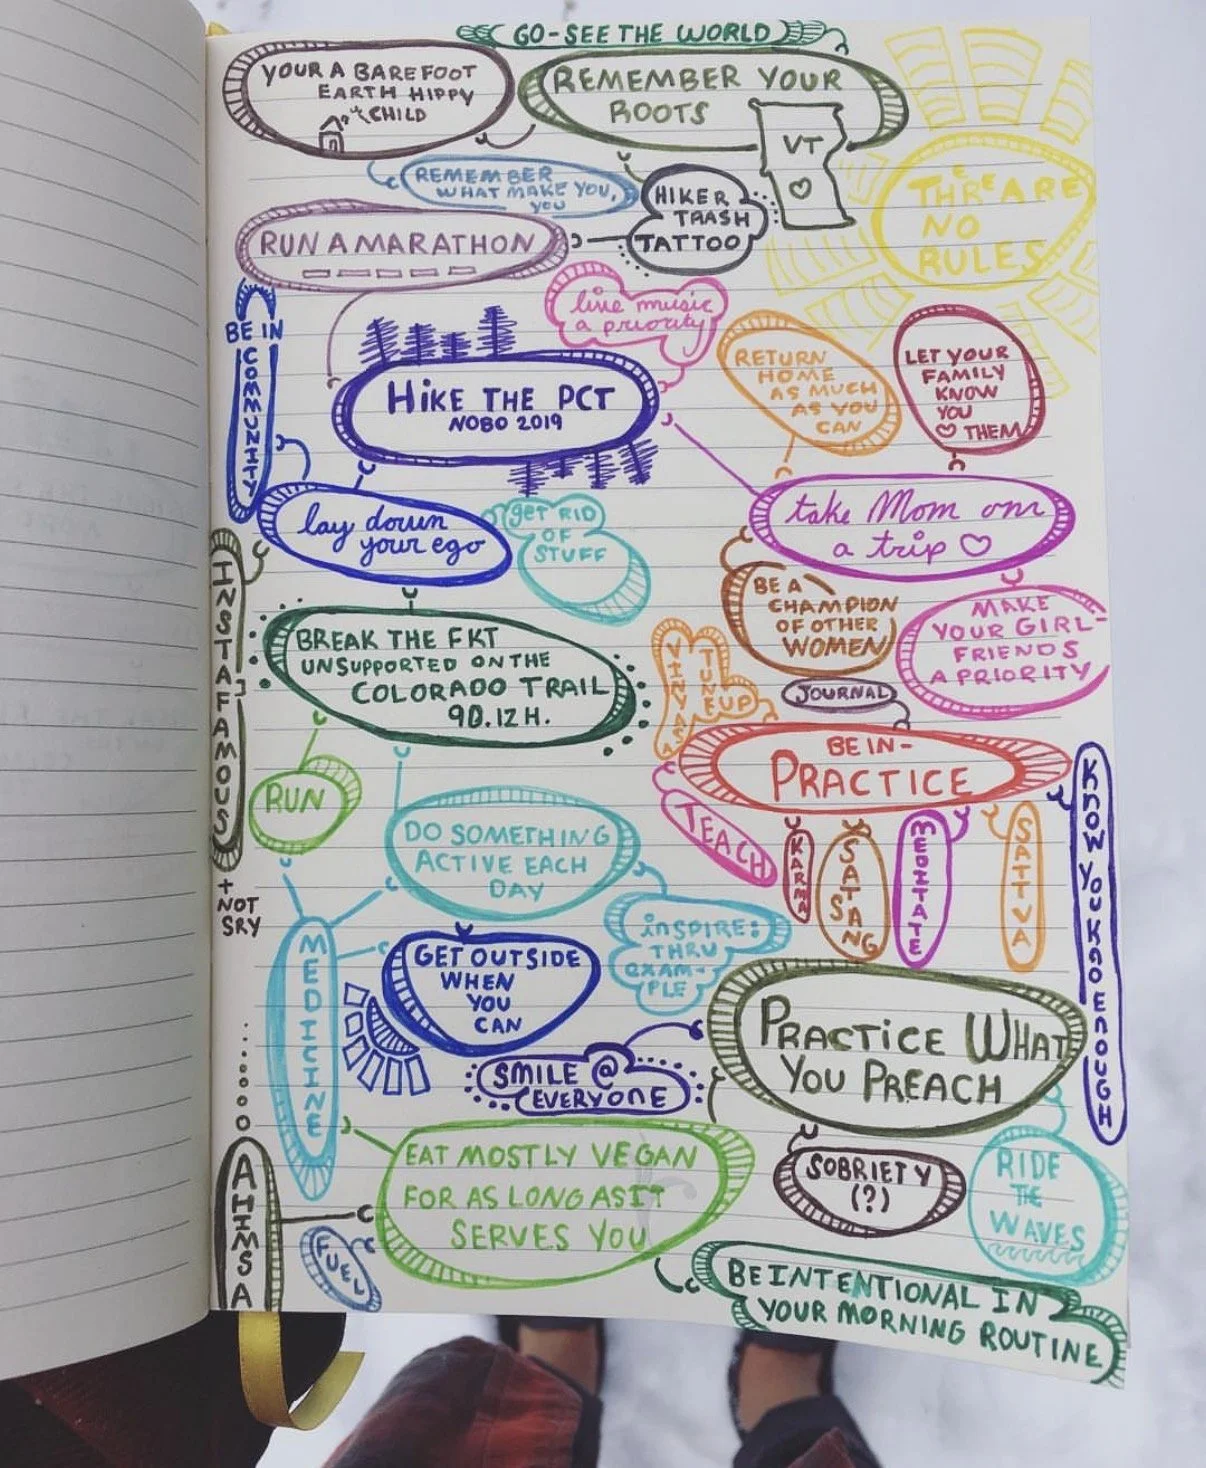 GO-SEE THE WORLD
YOUR A BAREFOOT
EARTH HIPPY
CHILD
REMEMBER YOUR
ROOTS
VT
REMEMBER
WHAT MAKE YOU,
YOU
HIKER
TRASH
TATTOO
THREARE
E
NO
RULES
RUN A MARATHON
live music
a priority
BE IN
COMMUNITY
HIKE THE PCT
NOBO 2019
RETURN
HOME
AS MUCH
AS YOU
CAN
LET YOUR
FAMILY
KNOW
YOU
♡ THEM
lay down
your ego
get RID
OF
STUFF
take Mom on
a trip ♡
INSTAFAMOUS
+
NOT
SRY
BREAK THE FKT
UNSUPPORTED ON THE
COLORADO TRAIL
9D.12H.
BE A
CHAMPION
OF OTHER
WOMEN
MAKE
YOUR GIRL-
FRIENDS
A PRIORITY
VINYASA
TUNEUP
JOURNAL
BE IN-
PRACTICE
KNOW YOU KNO ENOUGH
RUN
DO SOMETHING
ACTIVE EACH
DAY
TEACH
KARMA
SATSANG
MEDITATE
SATTVA
MEDICINE
GET OUTSIDE
WHEN
YOU
CAN
INSPIRE:
THRU
EXAM-
PLE
PRACTICE WHAT
YOU PREACH
SMILE @
EVERYONE
AHIMSA
EAT MOSTLY VEGAN
FOR AS LONG AS IT
SERVES YOU
FUEL
SOBRIETY
(?)
RIDE
THE
WAVES
BE INTENTIONAL IN
YOUR MORNING ROUTINE